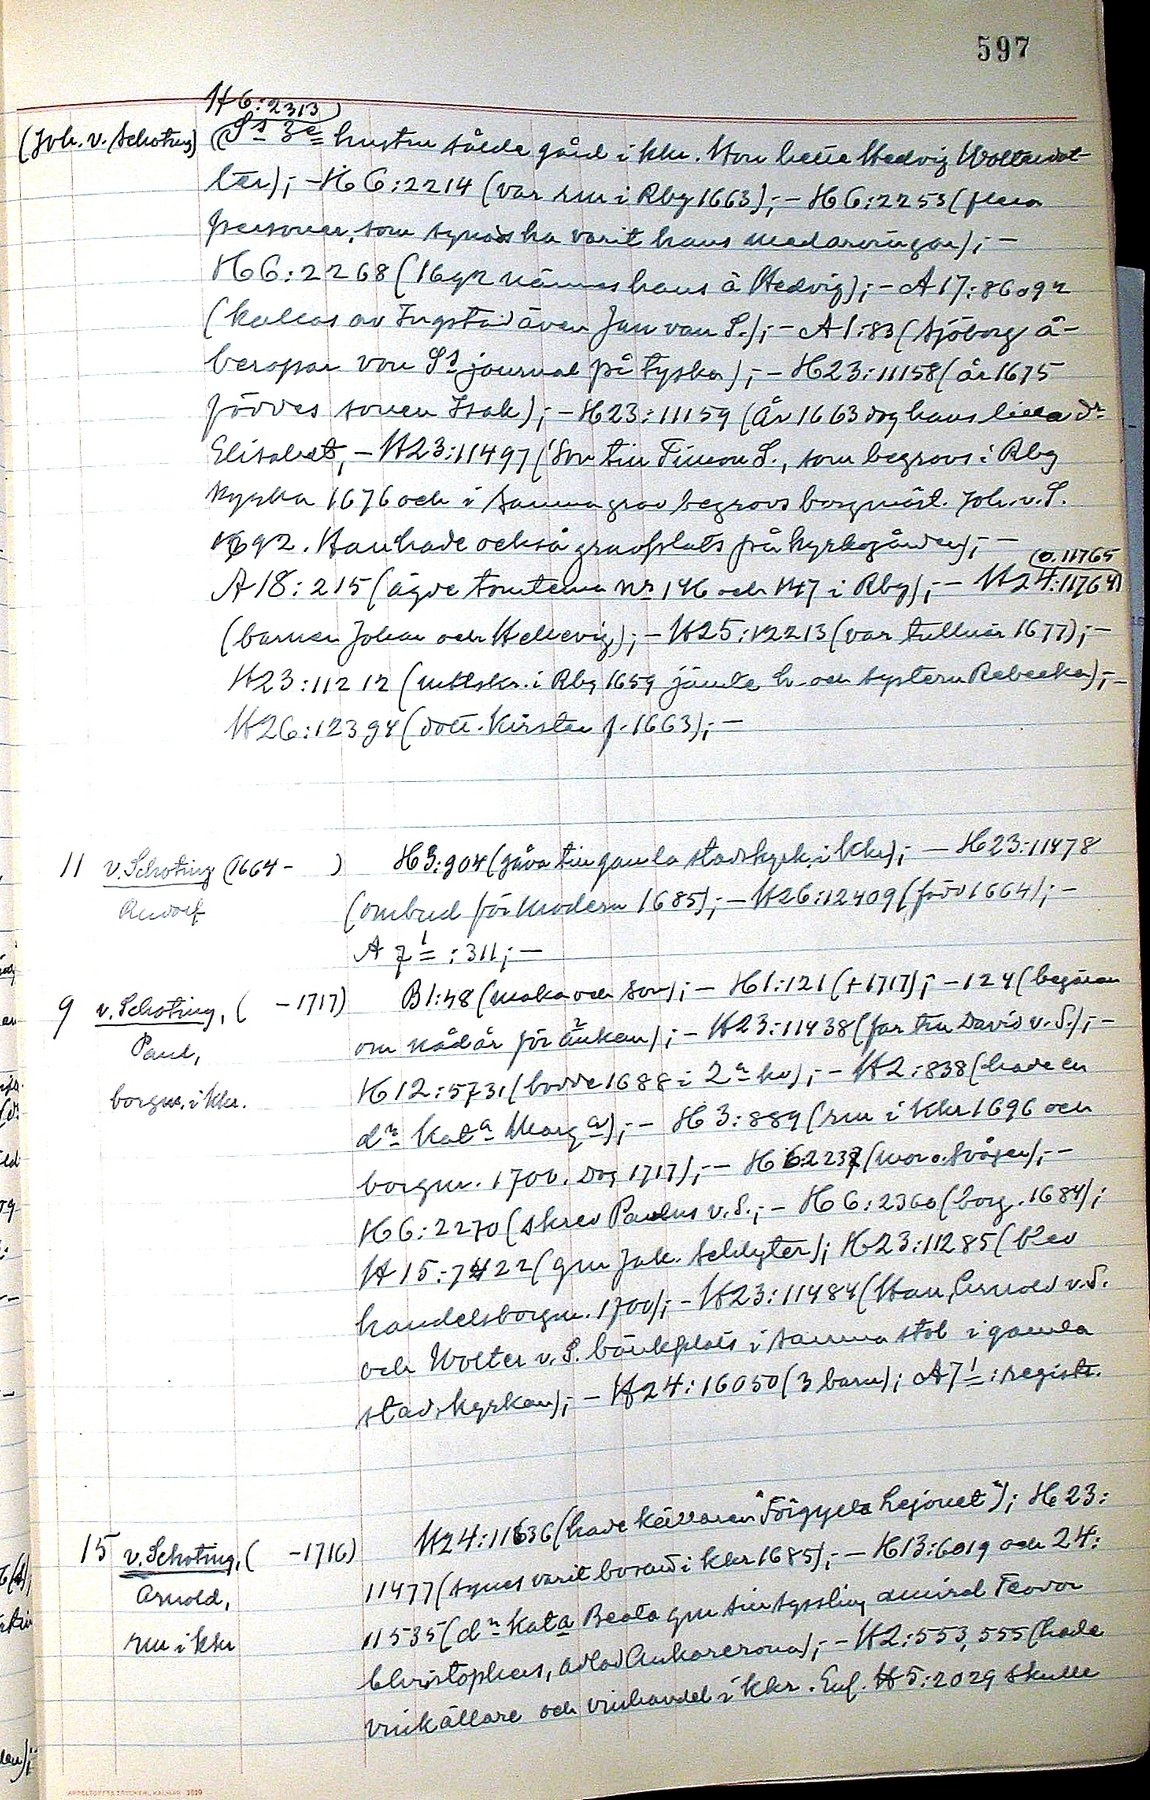 597
H6:2313)
(Joh. v. Schoting) (Ss 3e hustru sålde gård i kkr. Hon hette Hedvig Woltersdot-
ter); - H6:2214 (var rm i Rby 1663); - H6:2253 (flera
personer, som synas ha varit hans medarvingar); -
H6:2268 (1692 nämnes hans ä Hedvig); - A17:86092
(kallas av Ingstad även Jan van S.); - A1:83 (Sjöborg å-
beropar von Ss journal på tyska); - H23:11158 (år 1675
föddes sonen Isak); - H23:11159 (År 1663 dog hans lilla dr
Elisabet, - H23:11497 (Son till Timon S., som begrovs i Rby
kyrka 1676 och i samma grav begrovs borgmäst. Joh. v. S.
1692. Han hade också gravplats på kyrkogården); -
(o. 11765
A18:215 (ägde tomterna nr 146 och 147 i Rby); - H24:11764)
(barnen Johan och Hedevig); - H25:12213 (var tullnär 1677); -
H23:11212 (mttskr. i Rby 1659 jämte h. och systern Rebecka); -
H26:12394 (dott. Kirstin f. 1663); -
11 v. Schoting (1664 - ) H3:904 (gåva till gamla stadskyrk. i kkr); - H23:11478
Rudolf (ombud för modern 1685); - H26:12409 (född 1664); -
A 7 1 : 311; -
9 v. Schoting, ( - 1717) B1:48 (maka och son); - H1:121 (+ 1717); - 124 (begäran
Paul, om nådår för änkan); - H23:11438 (far till David v. S.); -
borgm. i kkr. H12:5731 (bodde 1688 i 2a kv); - H2:838 (hade en
dr Kata Marga); - H3:889 (rm i kkr 1696 och
borgm. 1700. Dog 1717); - H6:2237 (mor o. svåger); -
H6:2270 (skrev Paulus v. S.; - H6:2360 (borg. 1684);
H15:7422 (gm Jak. Schlyter); H23:11285 (blev
handelsborgm. 1700); - H23:11484 (Han, Arnold v. S.
och Wolter v. S. bänkplats i samma stol i gamla
stadskyrkan); - H24:16050 (3 barn); A7 1 : registr.
15 v. Schoting, ( - 1716) H24:11636 (hade källaren "Förgyllda Lejonet"); H23:
Arnold, 11477 (synes varit bosatt i kkr 1685); - H13:6019 och 24:
rm i kkr 11535 (dr Kata Beata gm sin syssling amiral Teodor
Christophers, adlad Ankarcrona); - H2:553, 555 (hade
vinkällare och vinhandel i kkr. Enl. H5:2029 skulle